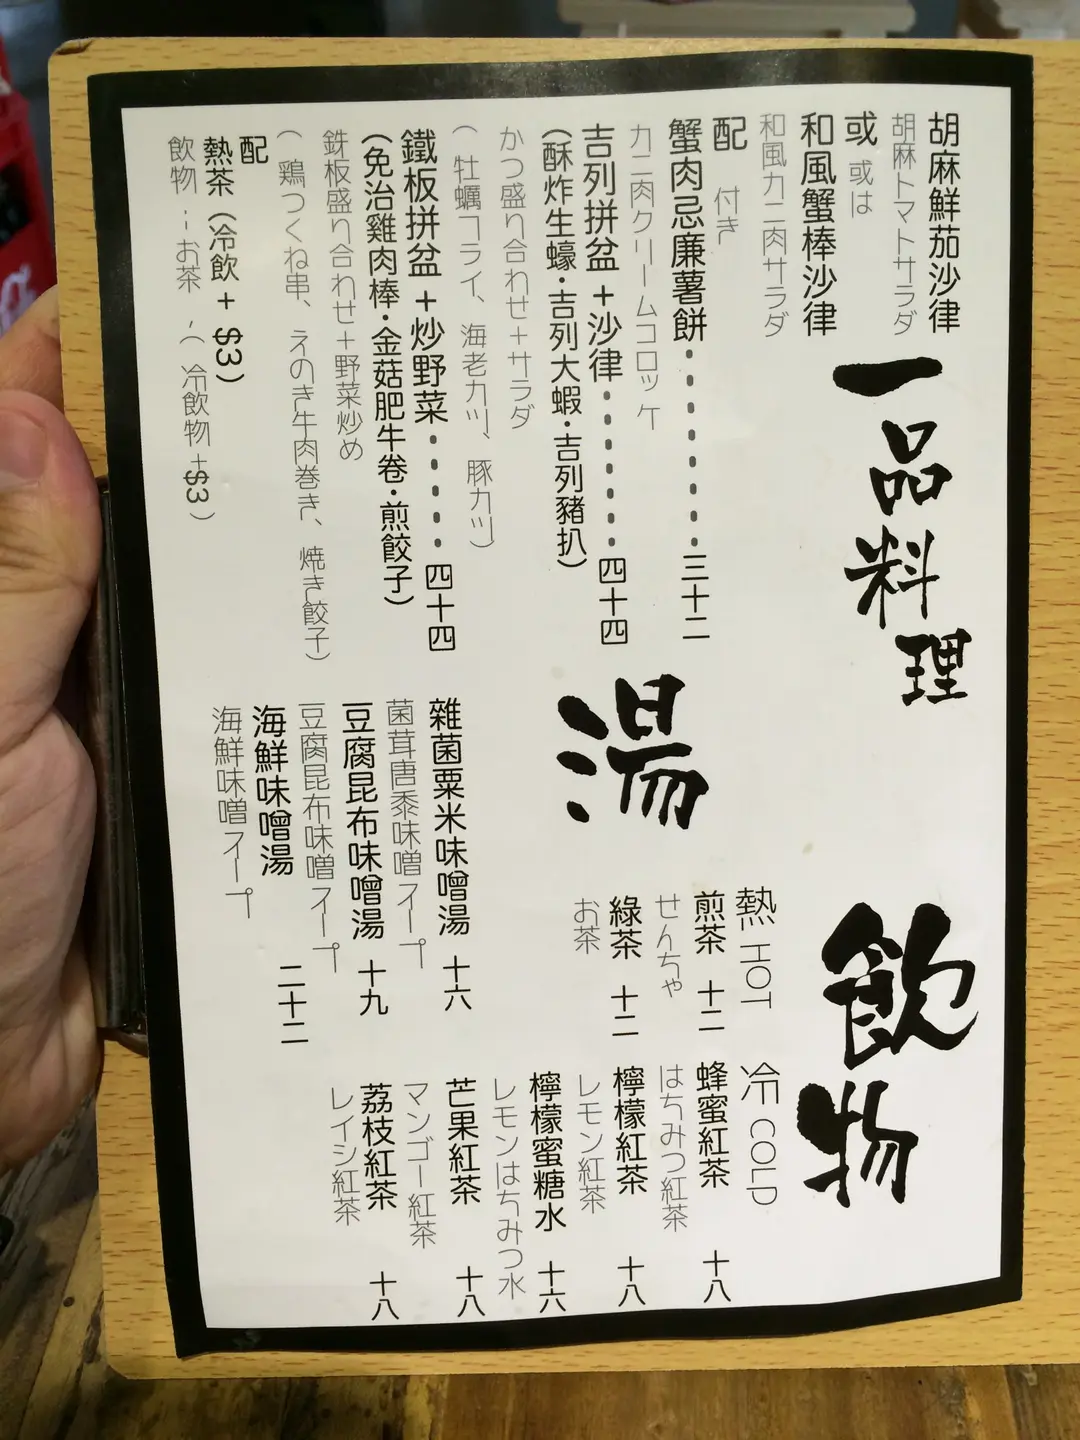 一品料理
胡麻鮮茄沙律
胡麻トマトサラダ
或 或は
和風蟹棒沙律
和風カニ肉サラダ
配 付き
蟹肉忌廉薯餅・・・・・・・・三十二
カニ肉クリームコロッケ
吉列拼盆+沙律・・・・・・・四十四
(酥炸生蠔・吉列大蝦・吉列豬扒)
かつ盛り合わせ+サラダ
(牡蠣フライ、海老カツ、豚カツ)
鐵板拼盆+炒野菜・・・・・四十四
(免治雞肉棒・金菇肥牛卷・煎餃子)
鉄板盛り合わせ+野菜炒め
(鶏つくね串、えのき牛肉巻き、焼き餃子)
配
熱茶(冷飲+$3)
飲物:お茶、(冷飲物+$3)
湯
雜菌粟米味噌湯 十六
菌茸唐黍味噌スープ
豆腐昆布味噌湯 十九
豆腐昆布味噌スープ
海鮮味噌湯 二十二
海鮮味噌スープ
飲物
熱 HOT
煎茶 十二
せんちゃ
綠茶 十二
お茶
冷 COLD
蜂蜜紅茶 十八
はちみつ紅茶
檸檬紅茶 十八
レモン紅茶
檸檬蜜糖水 十六
レモンはちみつ水
芒果紅茶 十八
マンゴー紅茶
荔枝紅茶 十八
レイシ紅茶